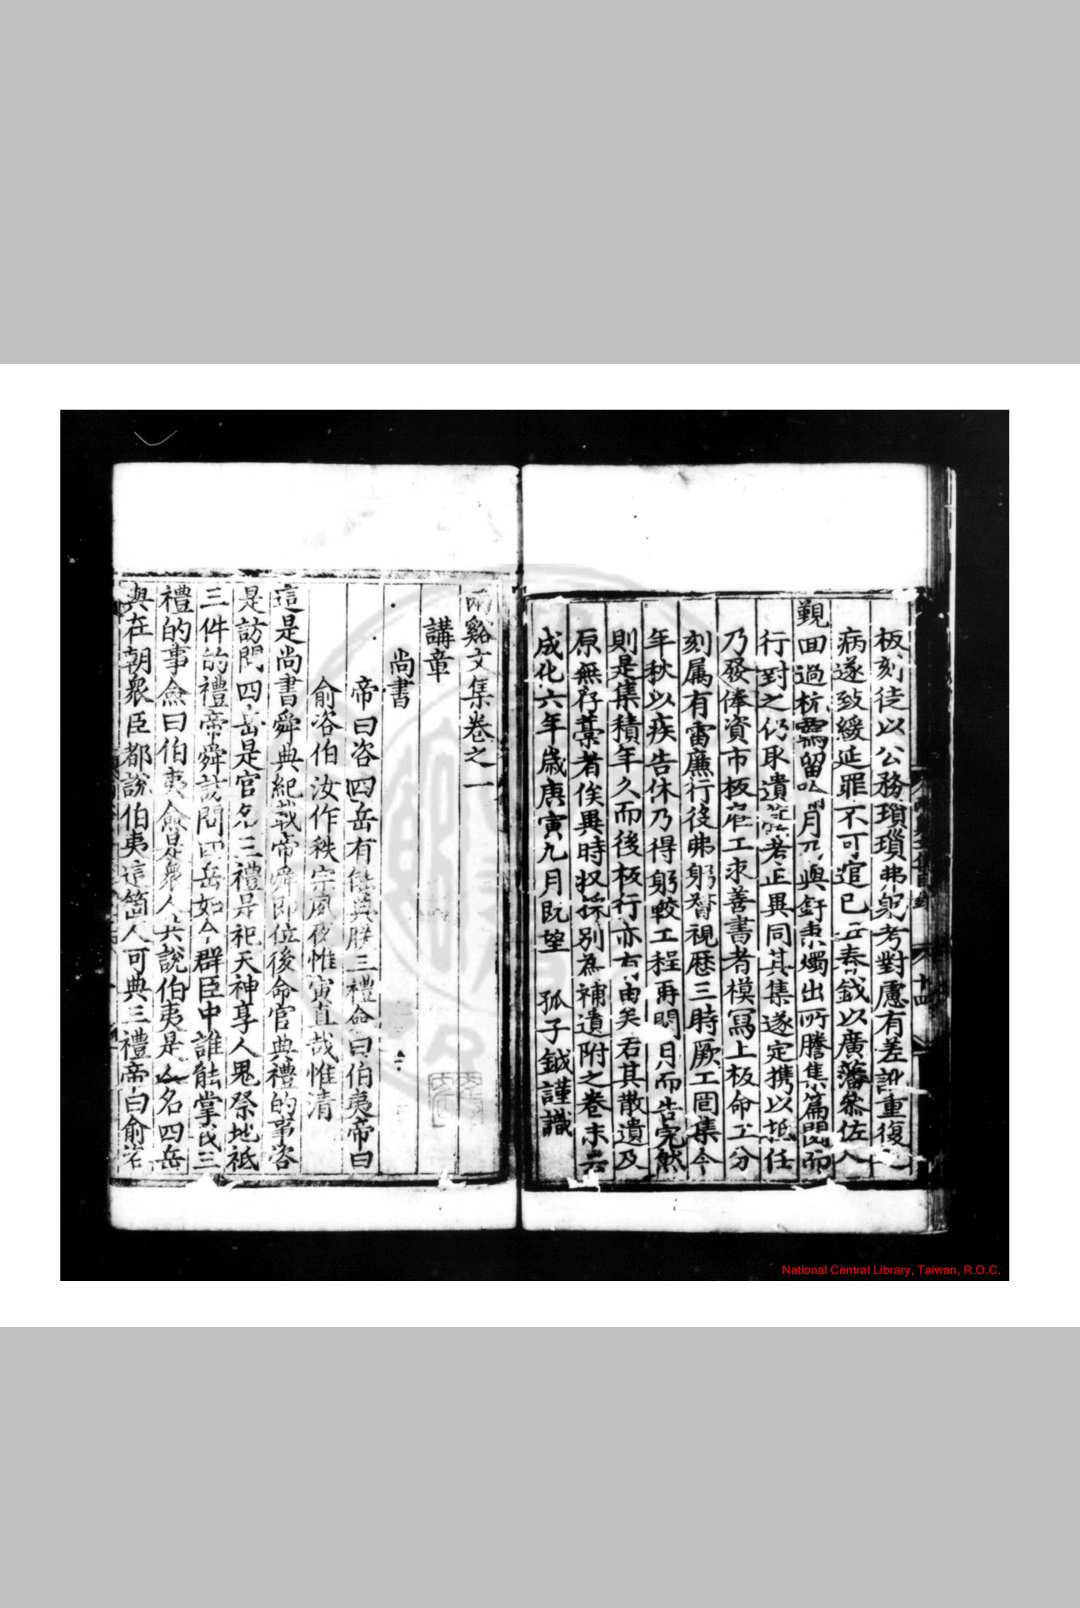 板刻徒以公務瑣瑣弗躬考對慮有差訛重復
病遂致緩延罪不可逭已丑春鉞以廣藩叅佐入
覲回過杭需留吟月乃與釪秉燭出所謄集篇閱而
行對之仍取遺考正異同其集遂定携以抵任
乃發俸資市板雇工求善書者模寫上板命工分
刻属有雷廉行役弗躬督視歷三時厥工罔集今
年秋以疾告休乃得躬較工程再閱月而告完然
則是集積年久而後板行亦有由矣若其散遺及
原無存藁者俟異時搜採別為補遺附之卷末云
成化六年歲庚寅九月既望 孤子鉞謹識
兩谿文集卷之一
講章
尚書
帝曰咨四岳有能典朕三禮僉曰伯夷帝曰
俞咨伯汝作秩宗夙夜惟寅直哉惟清
這是尚書舜典紀載帝舜即位後命官典禮的事咨
是訪問四岳是官名三禮是祀天神享人鬼祭地祗
三件的禮帝舜訪問四岳如今群臣中誰能掌我三
禮的事僉曰伯夷僉是衆人共說伯夷是人名四岳
與在朝衆臣都說伯夷這箇人可典三禮帝曰俞咨
National Central Library, Taiwan, R.O.C.